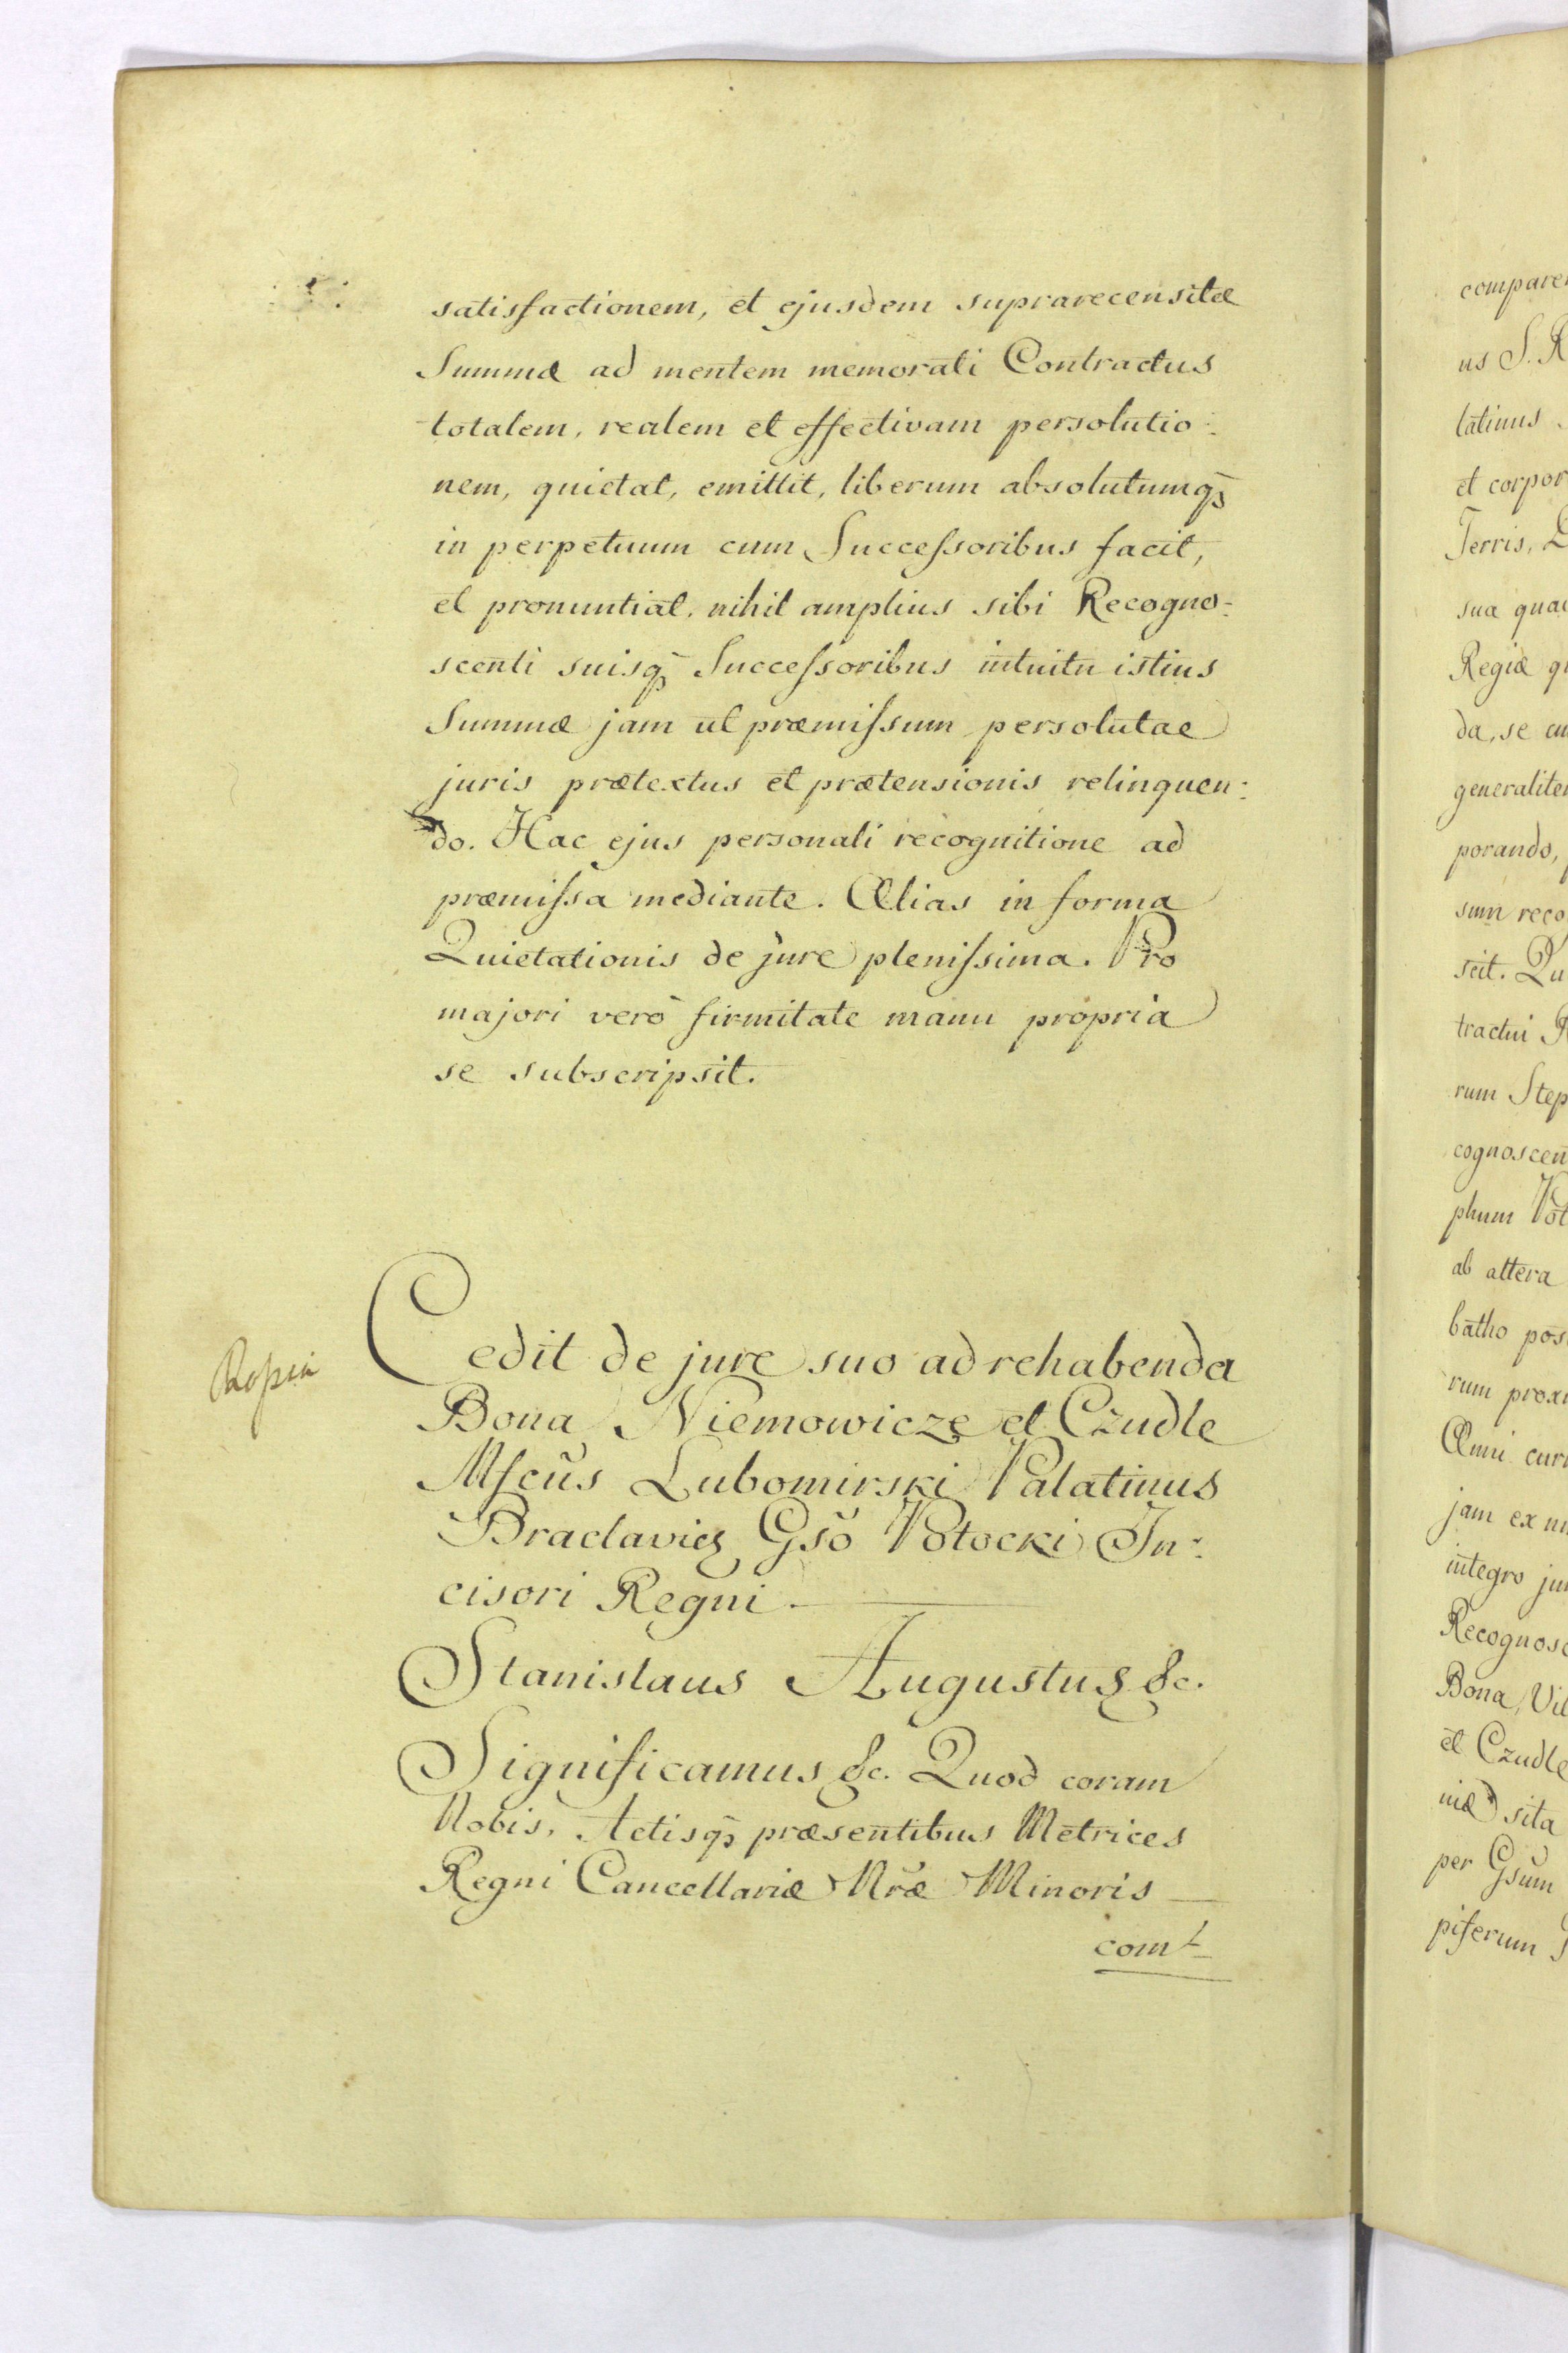 satisfactionem, et ejusdem suprarecensitæ
Summæ ad mentem memorati Contractus
totalem, realem et effectivam persolutio:
nem, quietat, emittit, liberum absolutumqꝫ
in perpetuum cum Succeſsoribus facit,
et pronuntiat, nihil amplius sibi Recogno:
scenti suisqꝫ Succeſsoribus intuitu istius
Summæ jam ut præmiſsum persolutae
juris prætextus et prætensionis relinquen:
do. Hac ejus personali recognitione ad
præmiſsa mediante. Alias in forma
Quietationis de jure pleniſsima. Pro
majori verò firmitate manu propria
se subscripsit.
Cedit de jure suo ad rehabenda
Bona Niemowicze et Czudle
Mſcus Lubomirski Palatinus
Braclavieꝫ Gſo Potocki In:
cisori Regni
Stanislaus Augustus &c.
Significamus &c. Quod coram
Nobis, Actisqꝫ præsentibus Metrices
Regni Cancellariæ Nræ Minoris
com
comparen
us S. R
latinus
et corpor
Terris,
sua qua
Regiæ q
da, se cu
generaliter
porando,
sum reco
scit. Qu
tractui
rum Step
cognoscen
phum Pot
ab altera
batho pos
rum prox
Anni curr
jam ex nu
integro jur
Recognosc
Bona, Vil
et Czudle
niæ sita
per Gsum
piferum